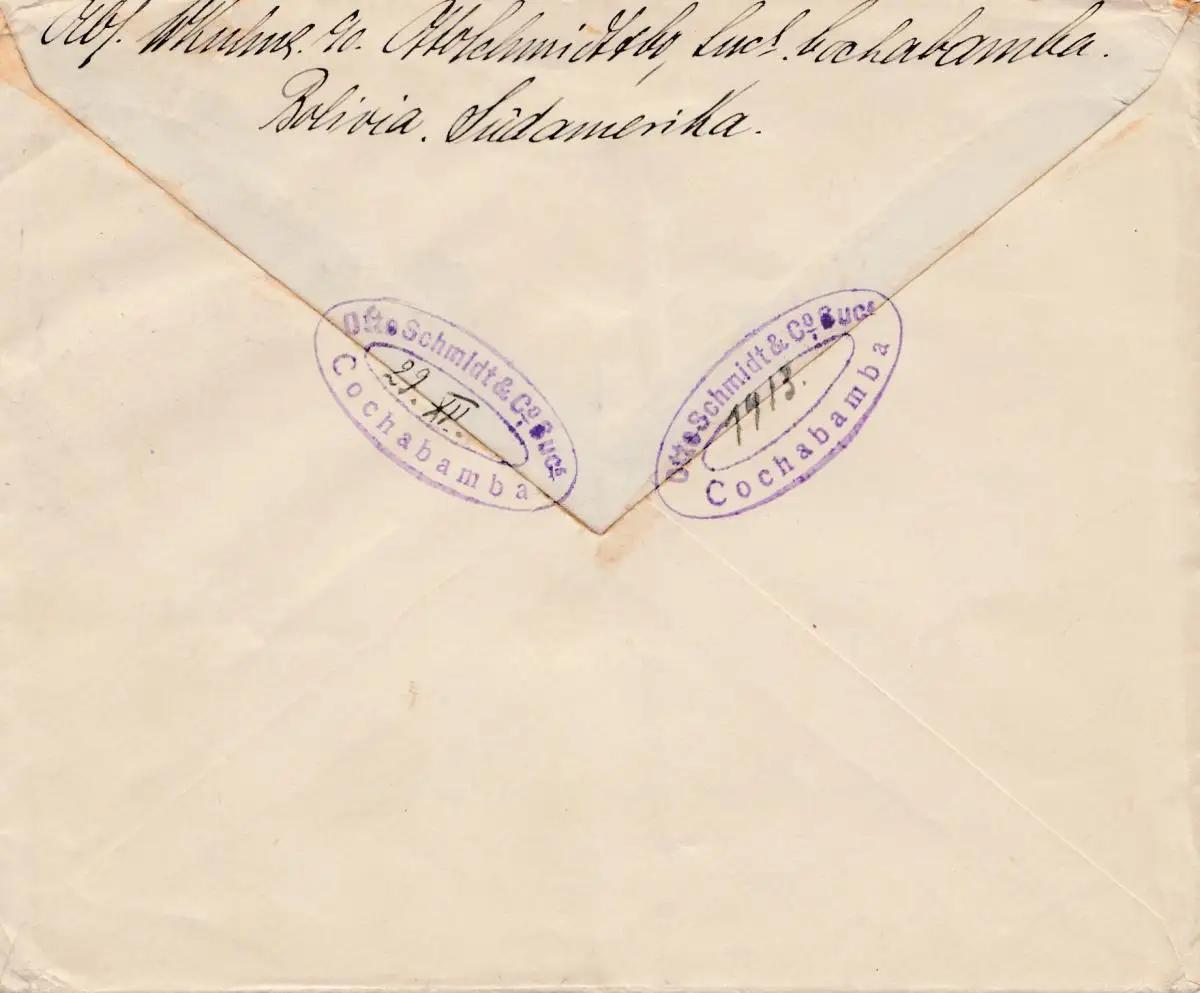 Abs. c/o. Otto Schmidt & Co, Sucs. Cochabamba.
Bolivia. Südamerika.
Otto Schmidt & Co. Sucs
29. XII.
Cochabamba
Otto Schmidt & Co. Sucs
1913.
Cochabamba